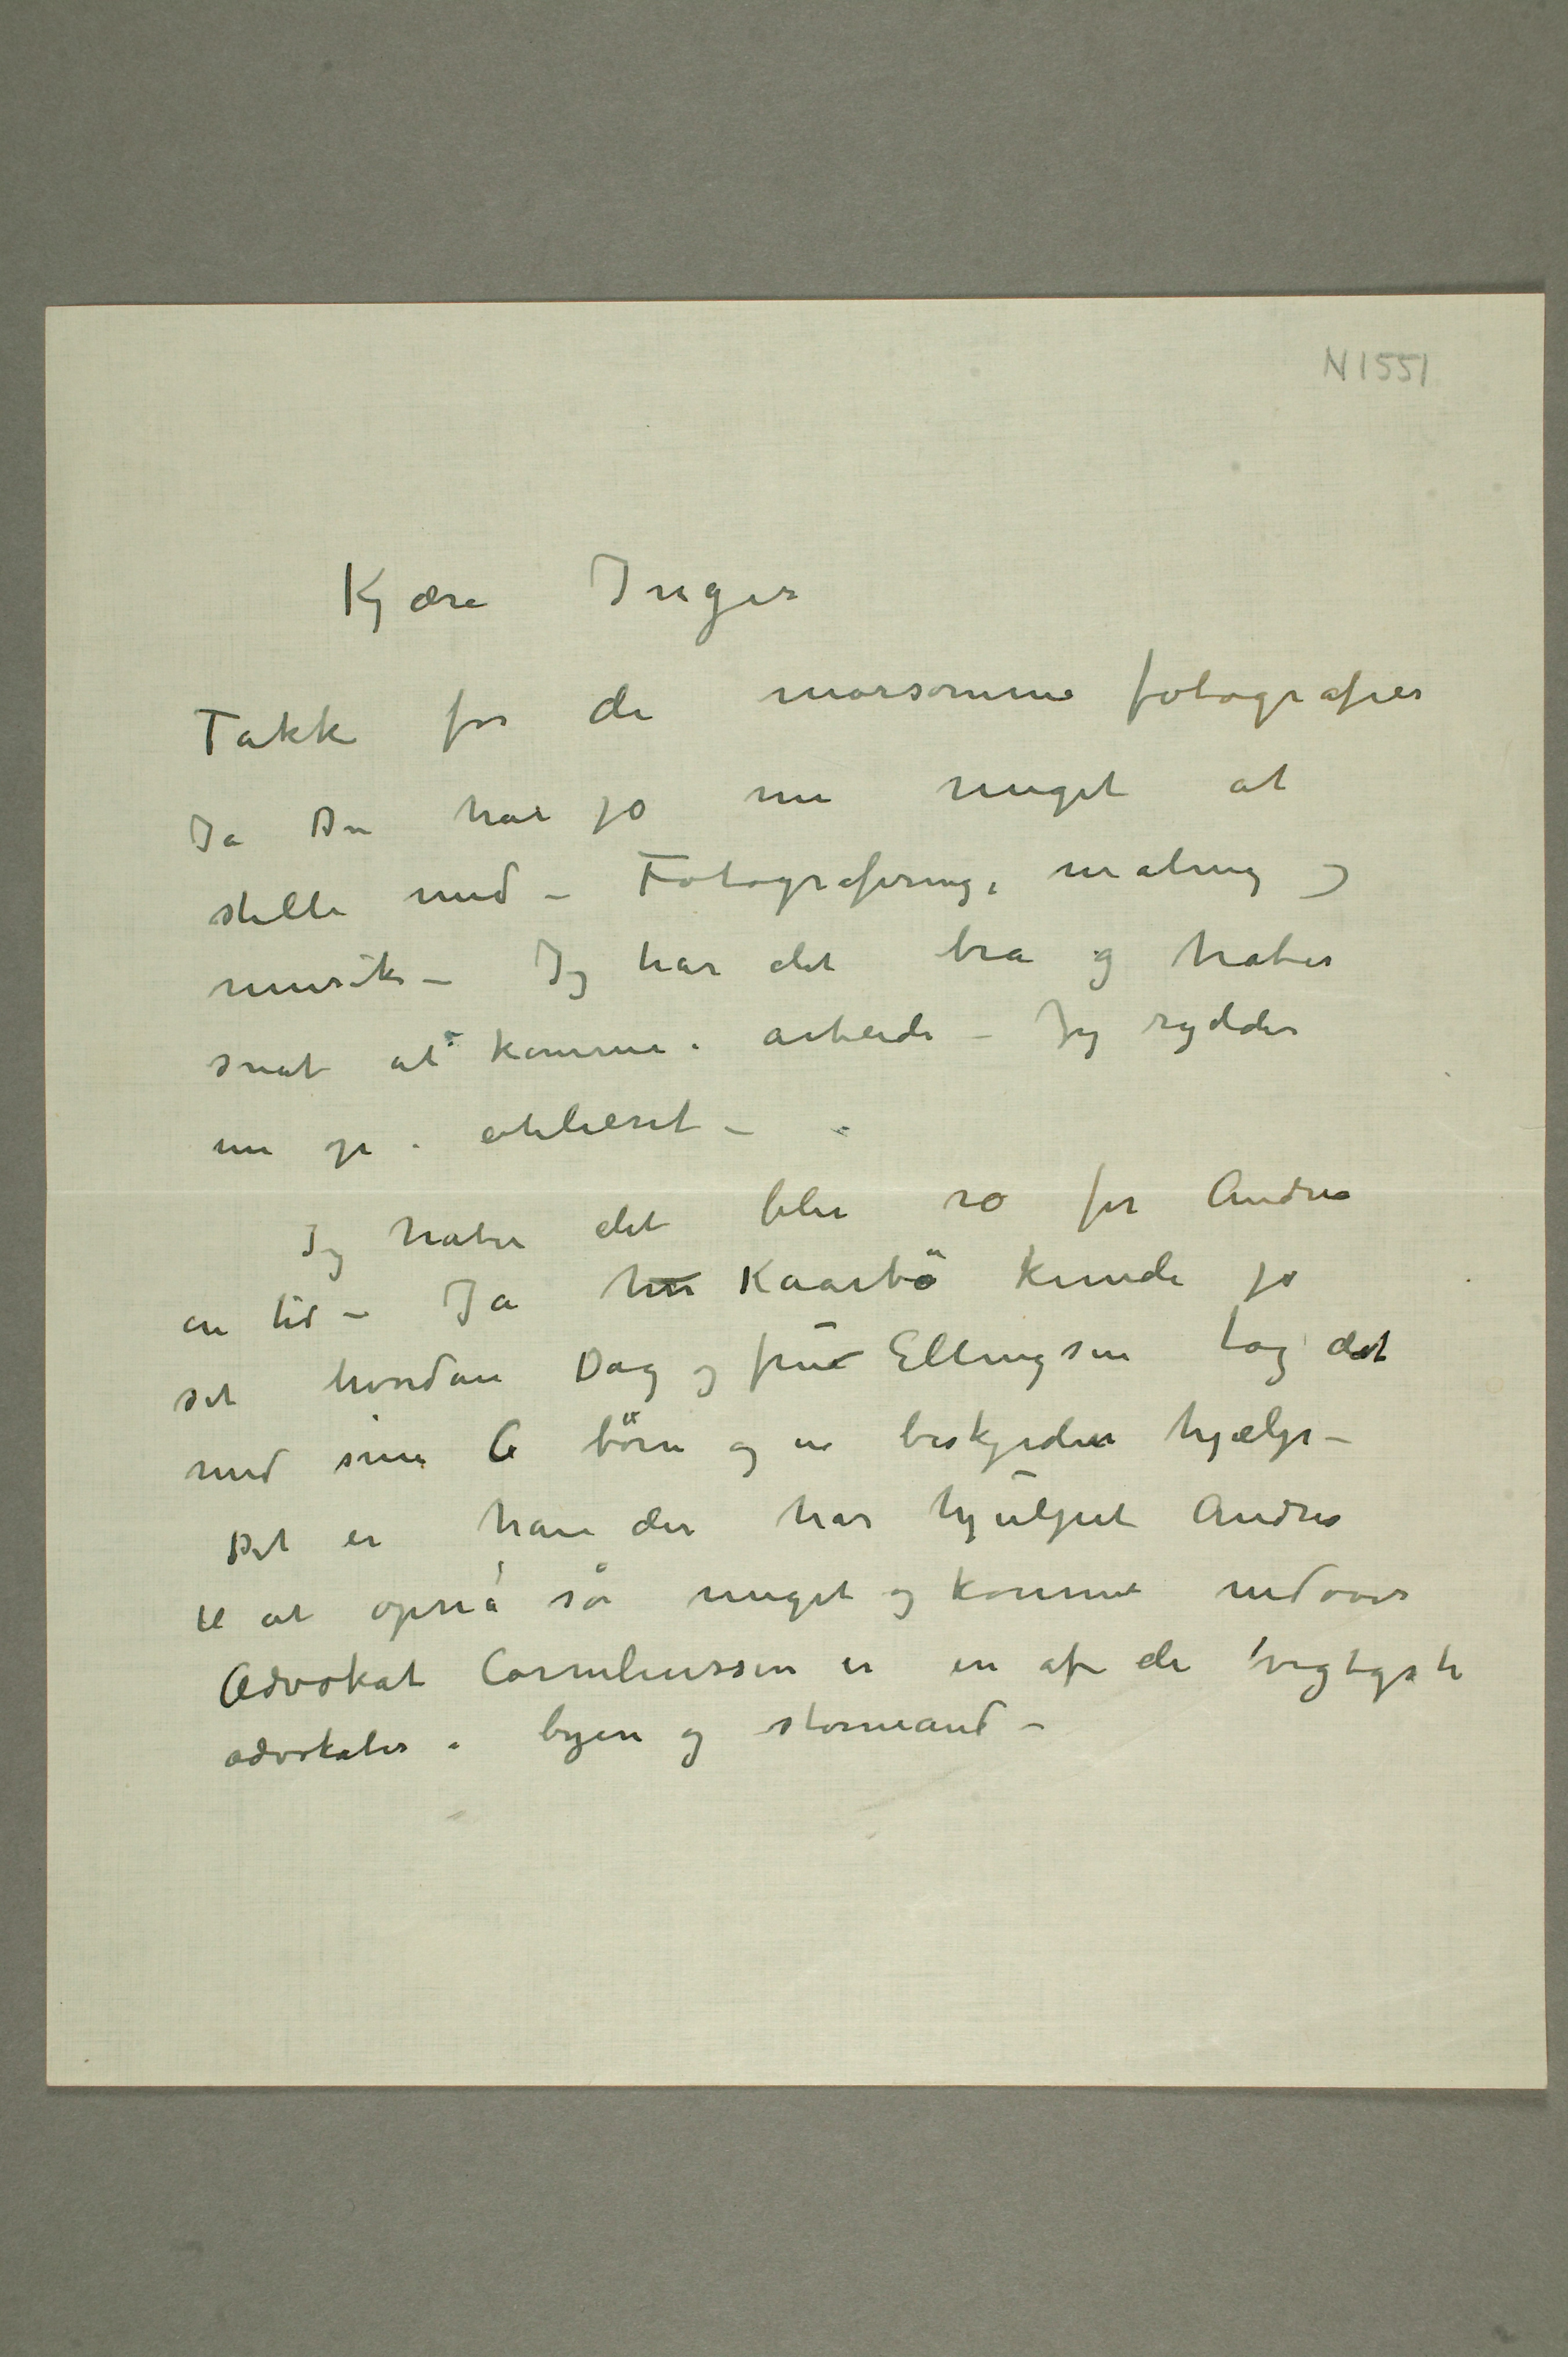 N 1551
Kjære Inger
Takk for de morsomme fotografier
Ja Du har jo nu meget at
stelle med – Fotografering, maling og
musik – Jeg har det bra og haber
snat at komme i arbeide – Jeg rydder
nu op i atelieret –
Jeg haber det blir ro for Andrea
en tid – Ja hu Kaarbö kunde jo
set hvordan Dag og frue Ellingsen tog det
med sine 6 börn og en beskjeden hjælp –
Det er han der har hjulpet Andrea
til at opnå så meget og komme indover
Advokat Corneliussen er en af de vigtigste
advokater i byen og stormand –